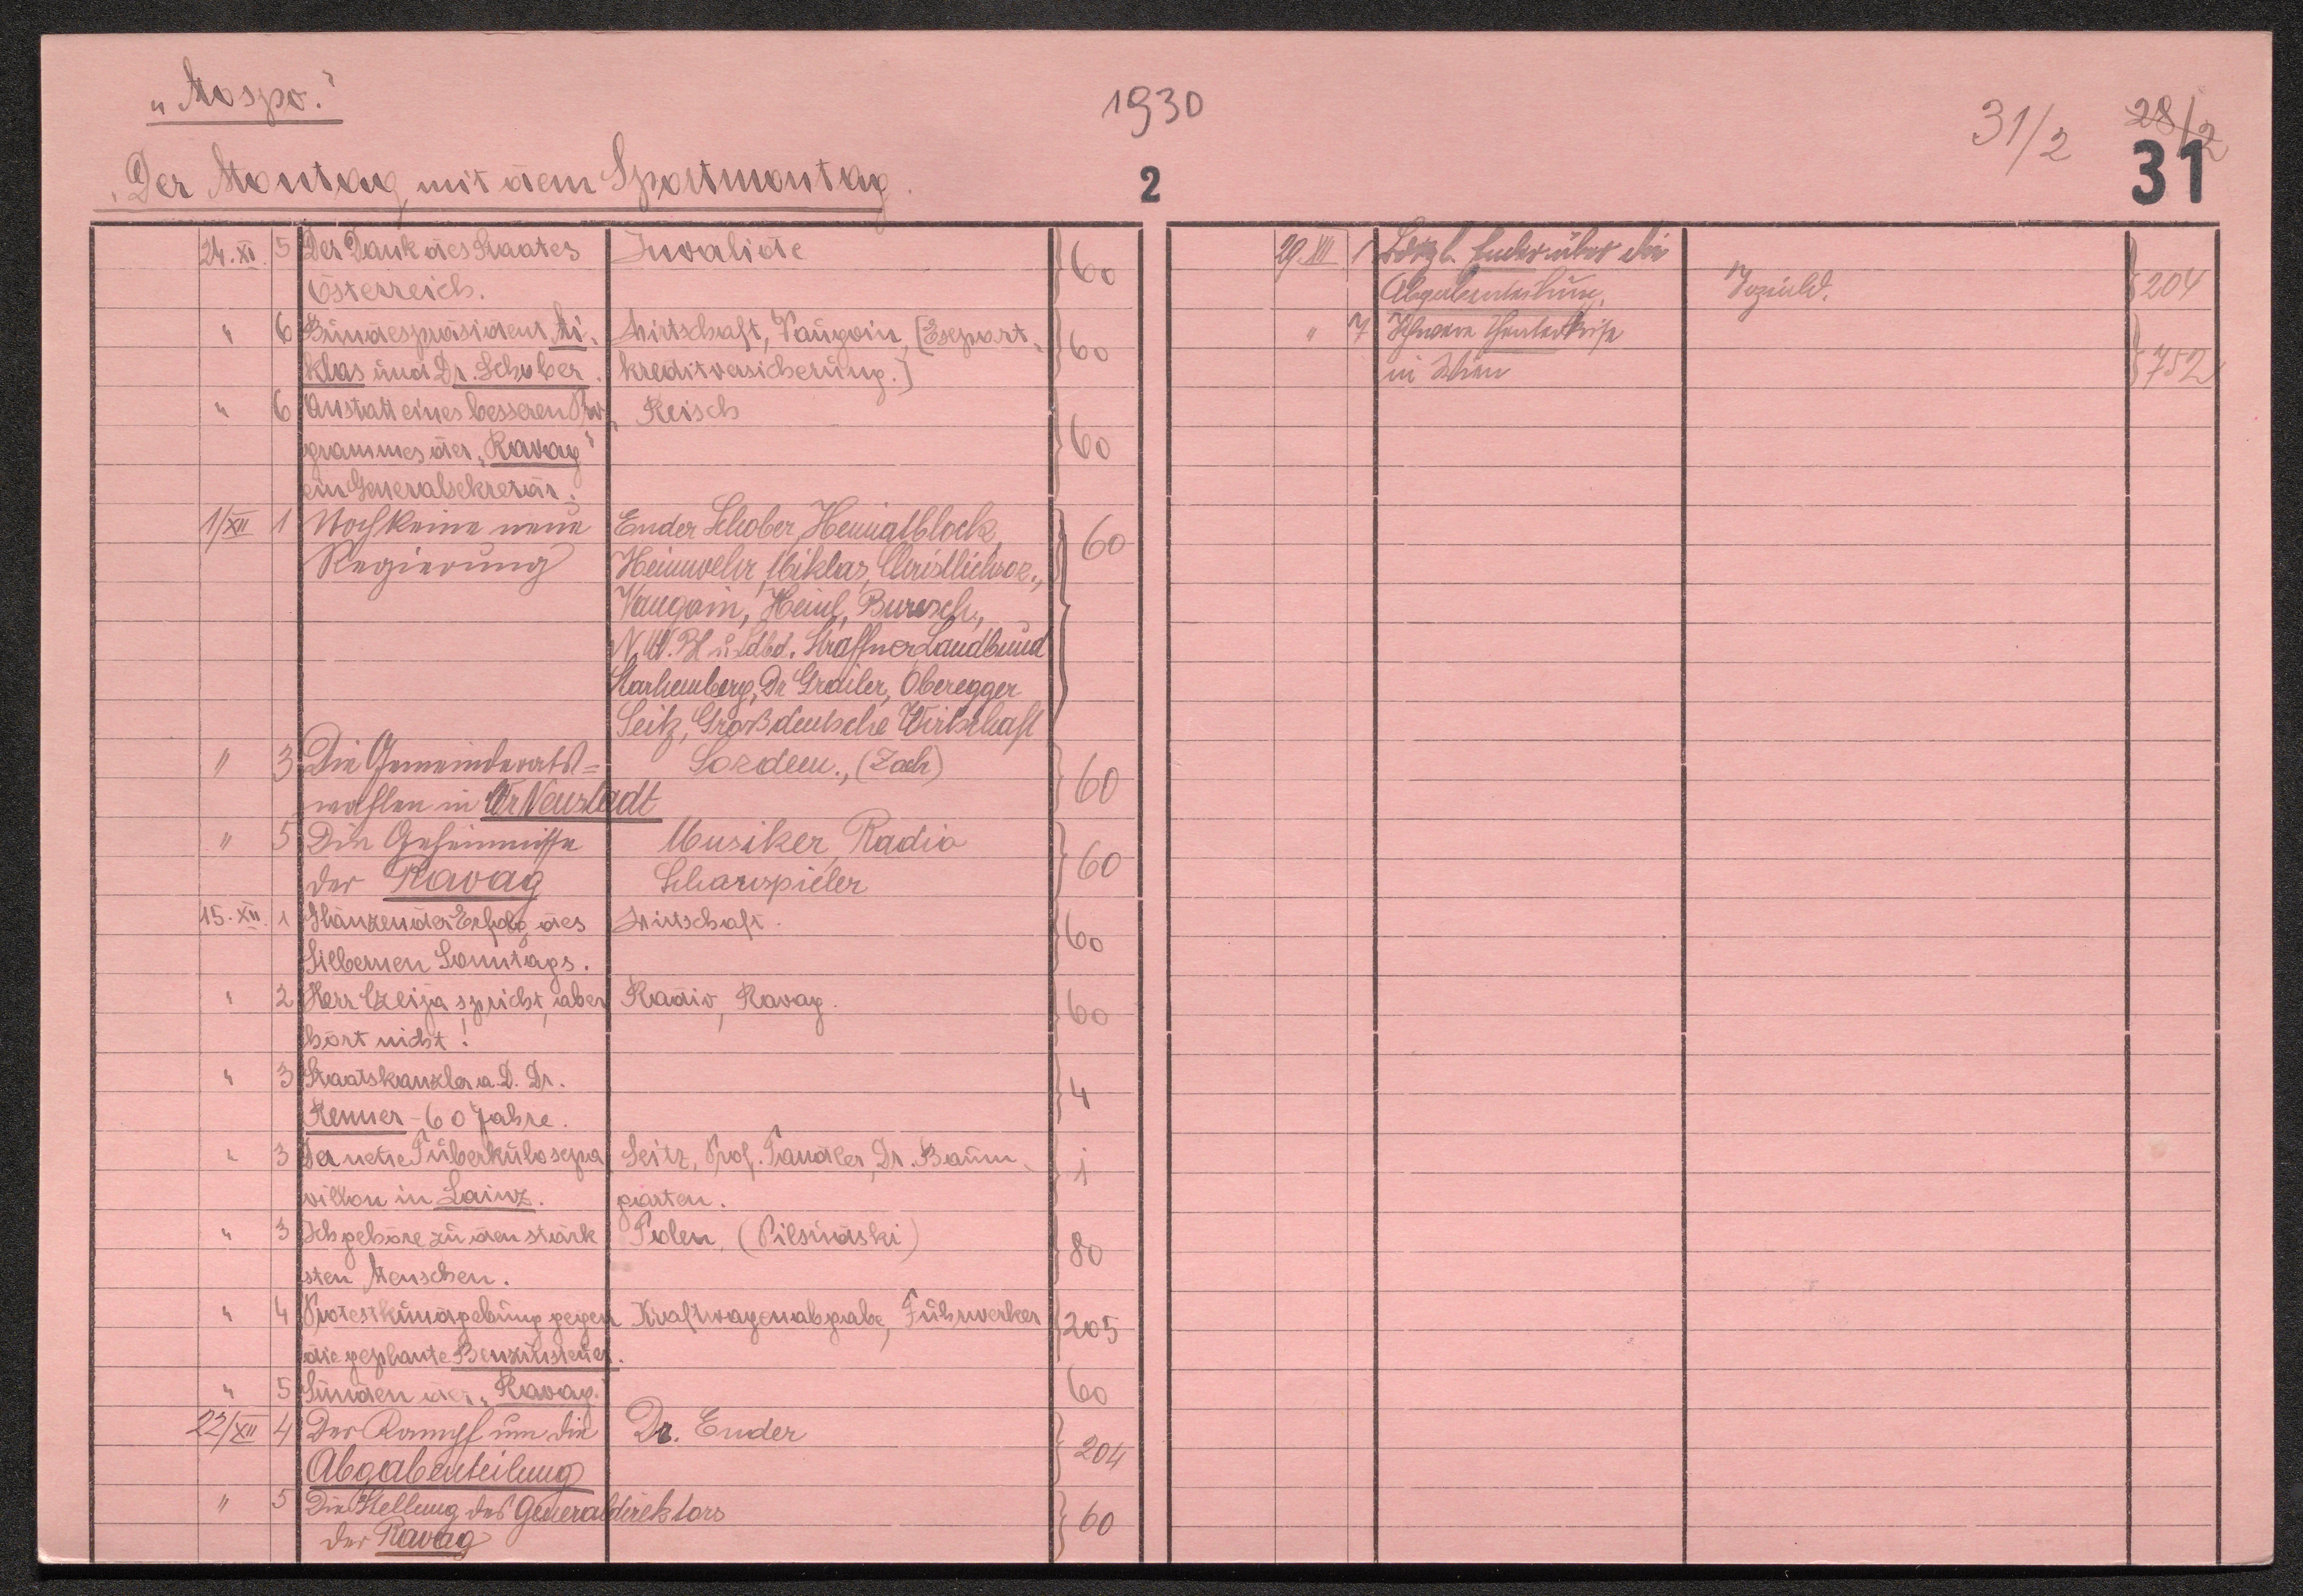 „Mospo."
1930
31/2
28/2
„Der Montag mit dem Sportmontag.
2
31
24. XI. 5 Der Dank des Staates Invalide 60
Österreich.
" 6 Bundespräsident Mi- Wirtschaft, Vaugoin, [Export- 60
klas und Dr. Schober. kreditversicherung.]
" 6 Anstatt eines besseren Pro- Reisch 60
grammes der „Ravag"
ein Generalsekretär.
1/XII 1 Noch keine neue Ender Schober, Heimatblock, 60
Regierung Heimwehr, Miklas, Christlichsoz.,
Vaugoin, Heinl, Buresch,
N. W. Bl u. Ldbd. Straffner Landbund
Starhemberg, Dr Grailer, Oberegger
Seitz, Großdeutsche Wirtschaft
" 3 Die Gemeinderats= Sozdem., (Zach) 60
wahlen in Wr Neustadt
" 5 Die Geheimnisse Musiker, Radio 60
der Ravag Schauspieler
15. XII. 1 Glänzender Erfolg des Wirtschaft. 60
Silbernen Sonntags.
" 2 Herr Czeija spricht, aber Radio, Ravag. 60
hört nicht!
" 3 Staatskanzler a. D. Dr. 4
Renner - 60 Jahre.
" 3 Der neue Tuberkulosepa- Seitz, Prof. Tandler, Dr. Baum- 1
villon in Lainz. garten.
" 3 Ich gehöre zu den stärk- Polen, (Pilsudski) 80
sten Menschen.
" 4 Protestkundgebung gegen Kraftwagenabgabe, Fuhrwerker 205
die geplante Benzinsteuer.
" 5 Sünden der „Ravag." 60
22/XII 4 Der Kampf um die Dr. Ender 204
Abgabenteilung
" 5 Die Stellung des Generaldirektors 60
der Ravag
29. XII 1 Ender über die
Abgabenteilung. 204
" 7 Schwere Theaterkrise 752
in Wien